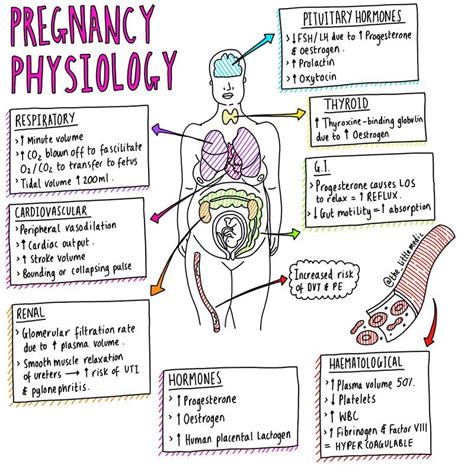 PREGNANCY
PHYSIOLOGY
PITUITARY HORMONES
> ↓FSH/LH due to ↑ Progesterone
& oestrogen.
> ↑ Prolactin
> ↑ Oxytocin
RESPIRATORY
> ↑ Minute volume
> ↑ CO2 blown off to fascilitate
O2/CO2 to transfer to fetus
> Tidal volume ↑ 200ml.
THYROID
↑ Thyroxine-binding globulin
due to ↑ Oestrogen
G.I.
> Progesterone causes LOS
to relax = ↑ REFLUX.
> ↓ Gut motility = ↑ absorption
CARDIOVASCULAR
> Peripheral vasodilation
> ↑ Cardiac output.
> ↑ Stroke volume
> Bounding or collapsing pulse
@the_littlemedic
Increased risk
of DVT & PE
RENAL
> Glomerular filtration rate
due to ↑ plasma volume.
> Smooth muscle relaxation
of ureters → ↑ risk of UTI
& pylonephritis.
HORMONES
> ↑ Progesterone
> ↑ Oestrogen
> ↑ Human placental Lactogen
HAEMATOLOGICAL
> ↑ Plasma volume 50%.
> ↓ Platelets
> ↑ WBC
> ↑ Fibrinogen & Factor VIII
= HYPERCOAGULABLE